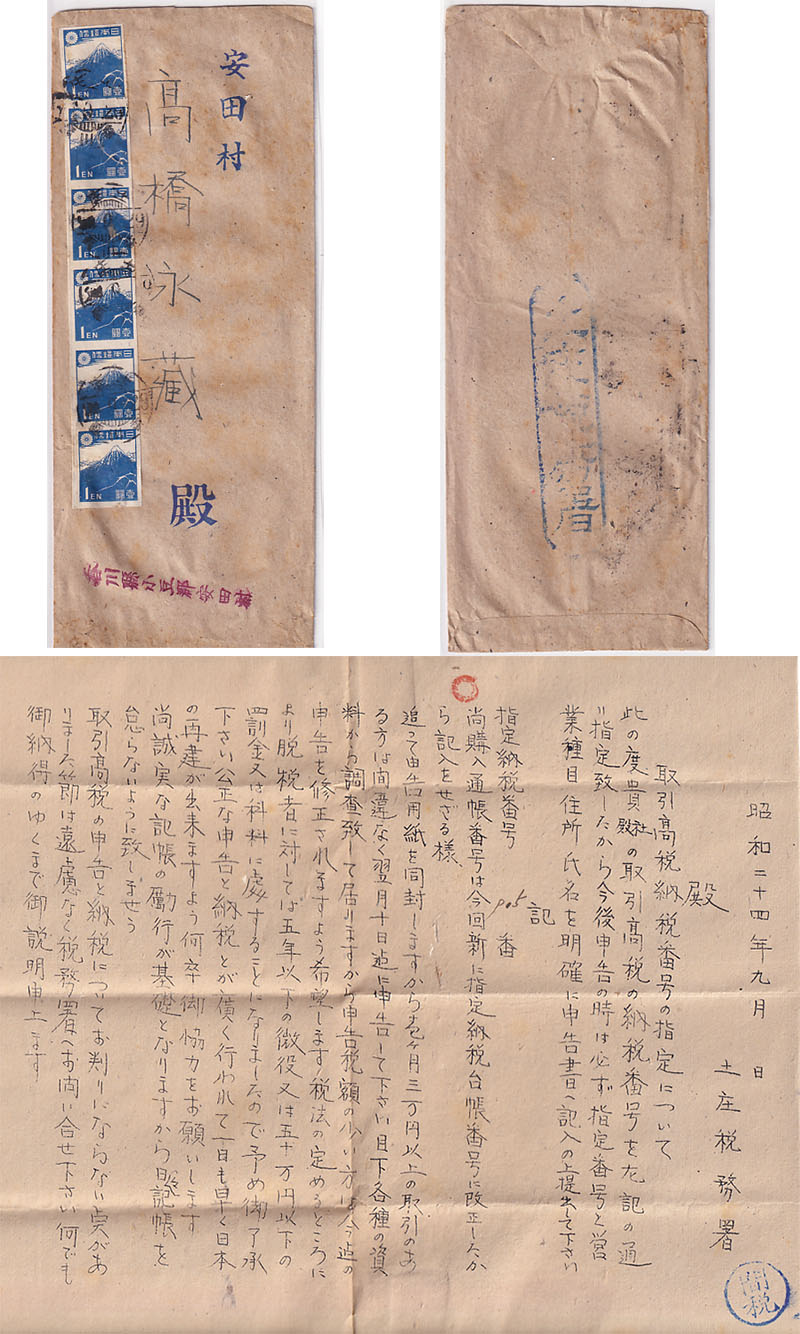 安田村
高橋泳藏
殿
香川縣小豆郡安田村
日本郵便
1EN
壹圓
日本郵便
1EN
壹圓
日本郵便
1EN
壹圓
日本郵便
1EN
壹圓
日本郵便
1EN
壹圓
日本郵便
1EN
壹圓
署
昭和二十四年九月 日
土庄税務署
殿
取引高税納税番号の指定について
此の度貴社殿の取引高税の納税番号を左記の通
り指定致したから今後申告の時は必ず指定番号と営
業種目住所氏名を明確に申告書へ記入の上提出て下さい
記
指定納税番号 番
尚購入通帳番号は今回新に指定納税台帳番号に改正したか
ら記入をせざる様
追って申告用紙を同封しますから壱ヶ月三万円以上の取引のあ
る方は間違なく翌月十日迠に申告して下さい目下各種の資
料から調査致して居りますから申告税額の少い方は今迠の
申告を修正されますよう希望します税法の定めるところに
より脱税者に対しては五年以下の徴役又は五十万円以下の
罰金又は科料に處することになりましたので予め御了承
下さい公正な申告と納税とが廣く行われて一日も早く日本
の再建が出来ますよう何卒御協力をお願いします
尚誠実な記帳の励行が基礎となりますから日記帳を
怠らないように致しませう
取引高税の申告と納税についてお判りにならない点があ
りました節は遠慮なく税務署へお問い合せ下さい何でも
御納得のゆくまで御説明申上ます
間税